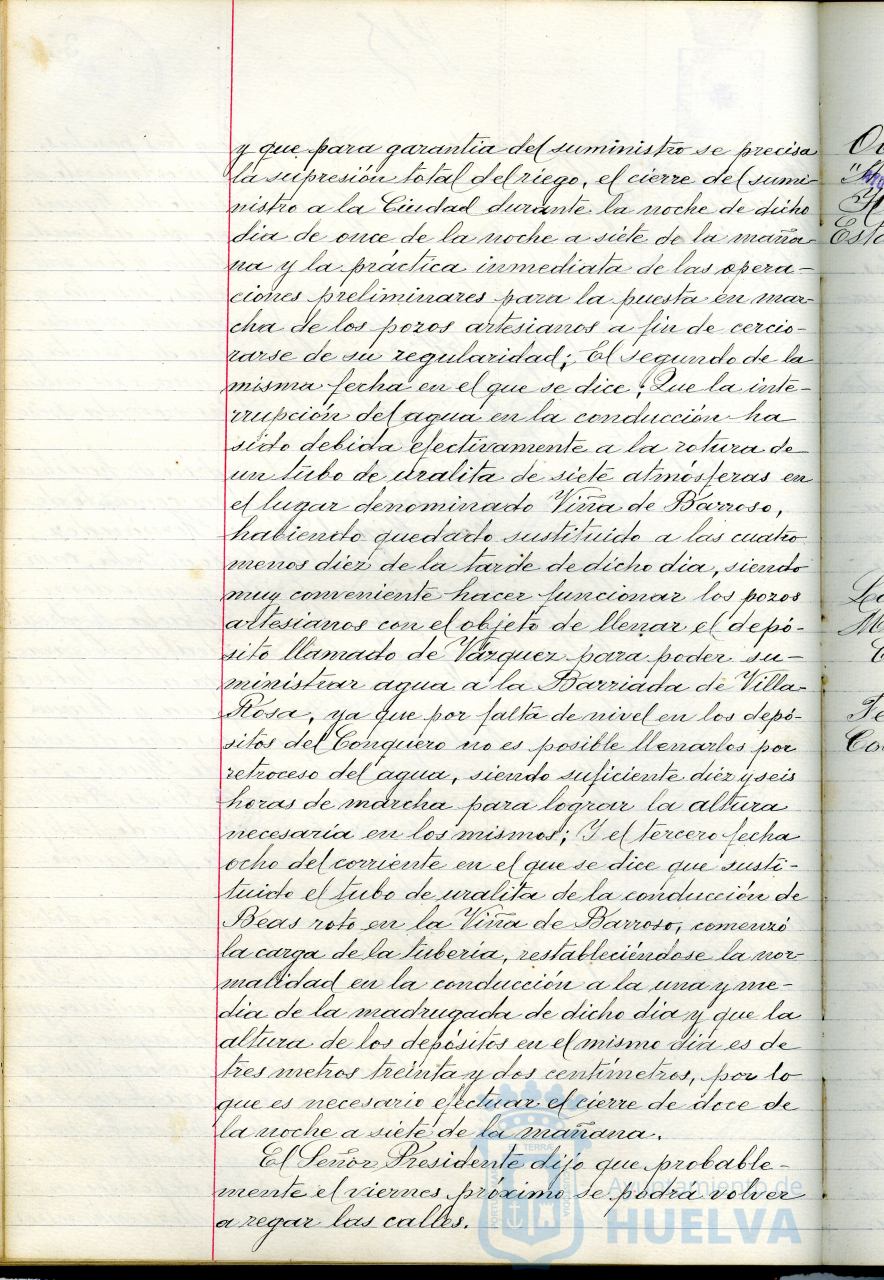 y que para garantia del suministro se precisa
la supresión total del riego, el cierre del sumi-
nistro a la Ciudad durante la noche de dicho
dia de once de la noche a siete de la maña-
na y la práctica inmediata de las opera-
ciones preliminares para la puesta en mar-
cha de los pozos artesianos a fin de cercio-
rarse de su regularidad; El segundo de la
misma fecha en el que se dice: Que la inte-
rrupción del agua en la conducción ha
sido debida efectivamente a la rotura de
un tubo de uralita de siete atmósferas en
el lugar denominado Viña de Barroso,
habiendo quedado sustituido a las cuatro
menos diez de la tarde de dicho dia, siendo
muy conveniente hacer funcionar los pozos
artesianos con el objeto de llenar el depó-
sito llamado de Vázquez para poder su-
ministrar agua a la Barriada de Villa-
Rosa, ya que por falta de nivel en los depó-
sitos del Conquero no es posible llenarlos por
retroceso del agua, siendo suficiente diez y seis
horas de marcha para lograr la altura
necesaria en los mismos; Y el tercero fecha
ocho del corriente en el que se dice que susti-
tuido el tubo de uralita de la conducción de
Beas roto en la Viña de Barroso, comenzó
la carga de la tuberia, restableciéndose la nor-
malidad en la conducción a la una y me-
dia de la madrugada de dicho dia y que la
altura de los depósitos en el mismo dia es de
tres metros treinta y dos centímetros, por lo
que es necesario efectuar el cierre de doce de
la noche a siete de la mañana.
El Señor Presidente dijo que probable-
mente el viernes próximo se podrá volver
a regar las calles.
Ayuntamiento de
HUELVA